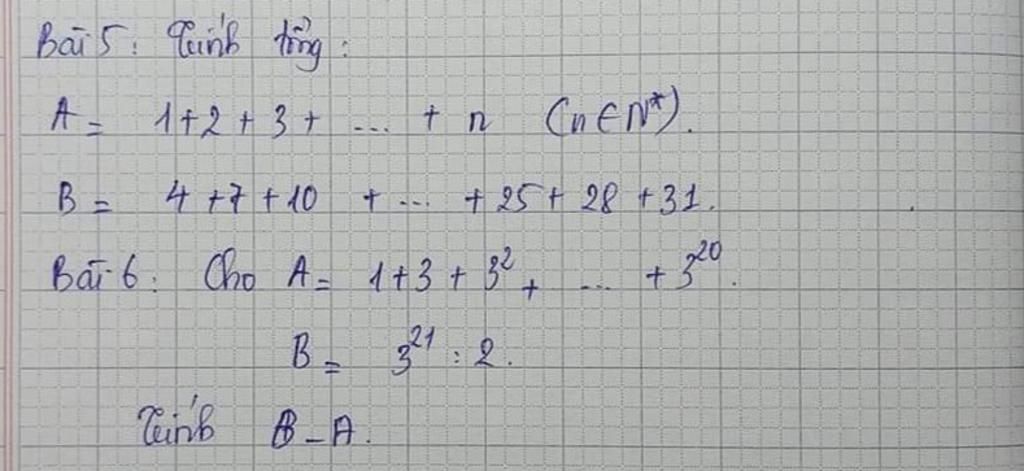 Bài 5: Tính tổng:
A = 1+2+3+ ... + n (n∈N*).
B = 4+7+10 + ... +25+28+31.
Bài 6: Cho A = 1+3+3²+ ... +3²⁰.
B = 3²¹ : 2.
Tính B-A.